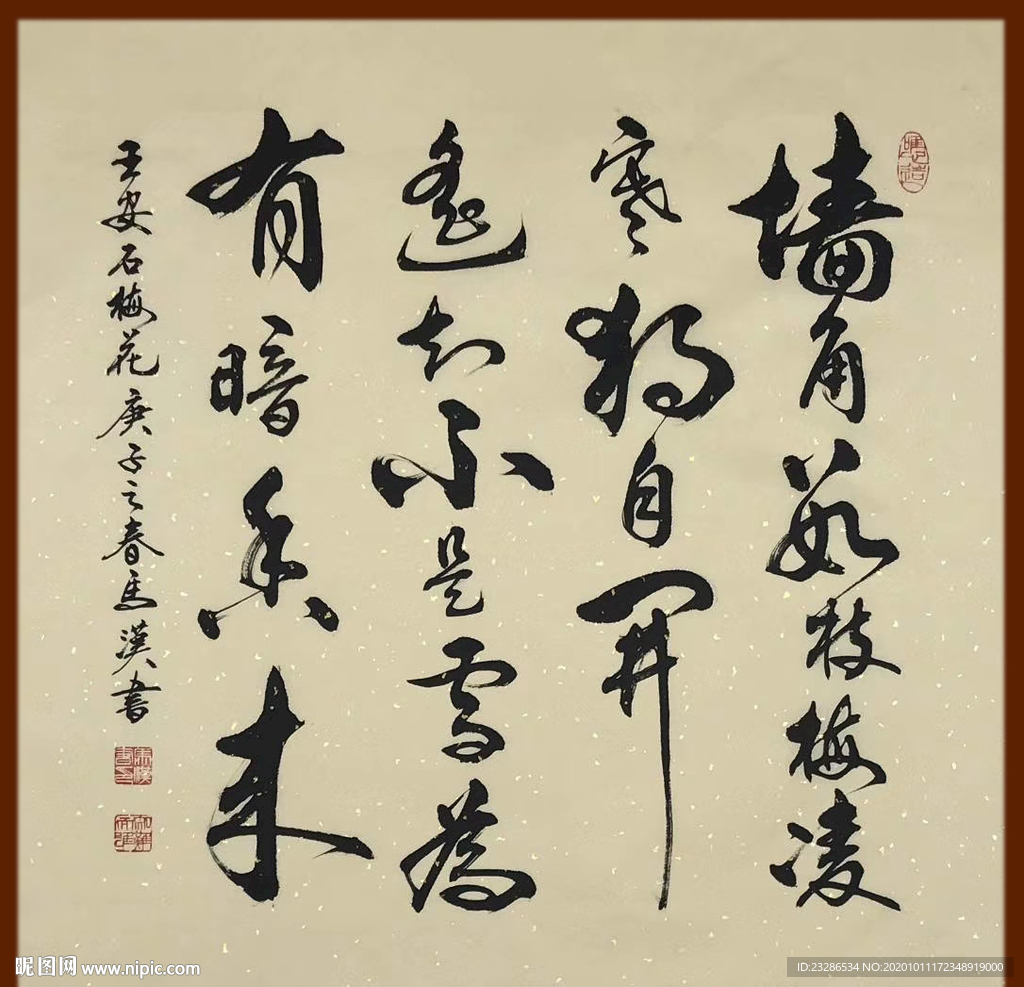 墙角數枝梅凌
寒獨自開
遙知不是雪為
有暗香来
王安石梅花庚子之春馬漢書
昵图网 www.nipic.com
ID:23286534 NO:20201011172348919000